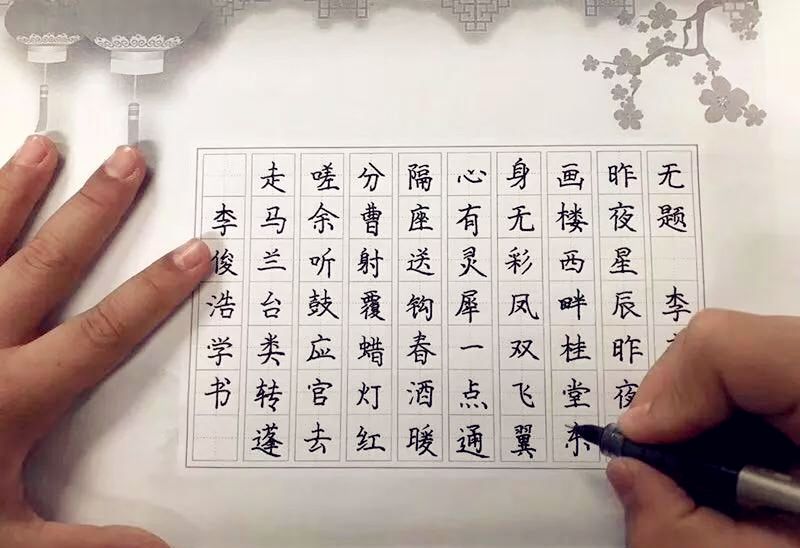 无题 李
昨夜星辰昨夜
画楼西畔桂堂东
身无彩凤双飞翼
心有灵犀一点通
隔座送钩春酒暖
分曹射覆蜡灯红
嗟余听鼓应官去
走马兰台类转蓬
李俊浩学书